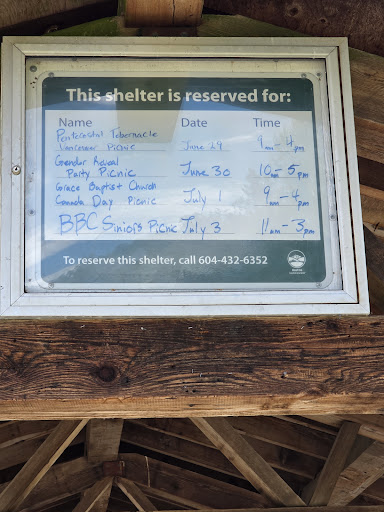 This shelter is reserved for:
Name Date Time
Pentecostal Tabernacle
Vancouver Picnic June 29 9am - 4pm
Gender Reveal
Party Picnic June 30 10am - 5pm
Grace Baptist Church
Canada Day Picnic July 1 9am - 4pm
BBC Siniors Picnic July 3 11am - 3pm
To reserve this shelter, call 604-432-6352